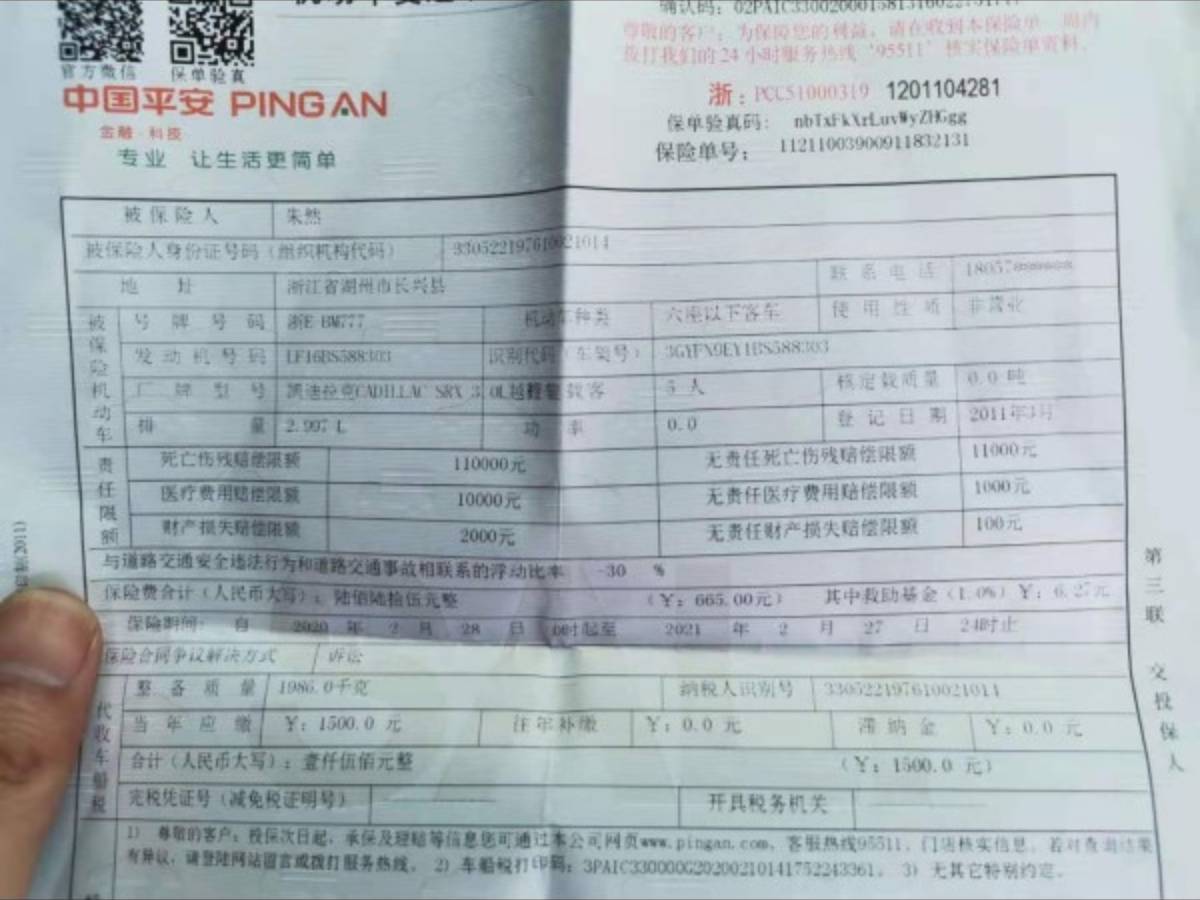 确认码：02PAIC330020001581
尊敬的客户：为保障您的利益，请在收到本保险单一周内
拨打我们的24小时服务热线“95511”核实保险单资料。
官方微信 保单验真
中国平安 PING AN
金融·科技
专业 让生活更简单
浙：PCC51000319 1201104281
保单验真码： nbTxFkXrLuvWyZHGgg
保险单号： 11211003900911832131
被保险人 朱然
被保险人身份证号码（组织机构代码） 330522197610021014
地 址 浙江省湖州市长兴县 联系电话 18057******
被保险机动车
号牌号码 浙E·BM777 机动车种类 六座以下客车 使用性质 非营业
发动机号码 LF16BS588303 识别代码（车架号） 3GYFN9EY1BS588303
厂牌型号 凯迪拉克CADILLAC SRX 3.0L越 载客 5 人 核定载质量 0.0 吨
排 量 2.997 L 功 率 0.0 登记日期 2011年3月
责任限额
死亡伤残赔偿限额 110000元 无责任死亡伤残赔偿限额 11000元
医疗费用赔偿限额 10000元 无责任医疗费用赔偿限额 1000元
财产损失赔偿限额 2000元 无责任财产损失赔偿限额 100元
与道路交通安全违法行为和道路交通事故相联系的浮动比率 -30 %
保险费合计（人民币大写）：陆佰陆拾伍元整 （￥：665.00元） 其中救助基金（1.0%）￥：6.27元
保险期间： 自 2020 年 2 月 28 日 0时起至 2021 年 2 月 27 日 24时止
保险合同争议解决方式 诉讼
代收车船税
整备质量 1986.0千克 纳税人识别号 330522197610021014
当年应缴 ￥：1500.0 元 往年补缴 ￥：0.0 元 滞纳金 ￥：0.0 元
合计（人民币大写）：壹仟伍佰元整 （￥：1500.0 元）
完税凭证号（减免税证明号） 开具税务机关
1） 尊敬的客户：投保次日起，承保及理赔等信息您可通过本公司网页www.pingan.com、客服热线95511、门店核实信息。若对查询结果
有异议，请登陆网站留言或拨打服务热线。 2）车船税打印码：3PAIC330000G20200210141752243361。 3）无其它特别约定。
第三联 交投保人